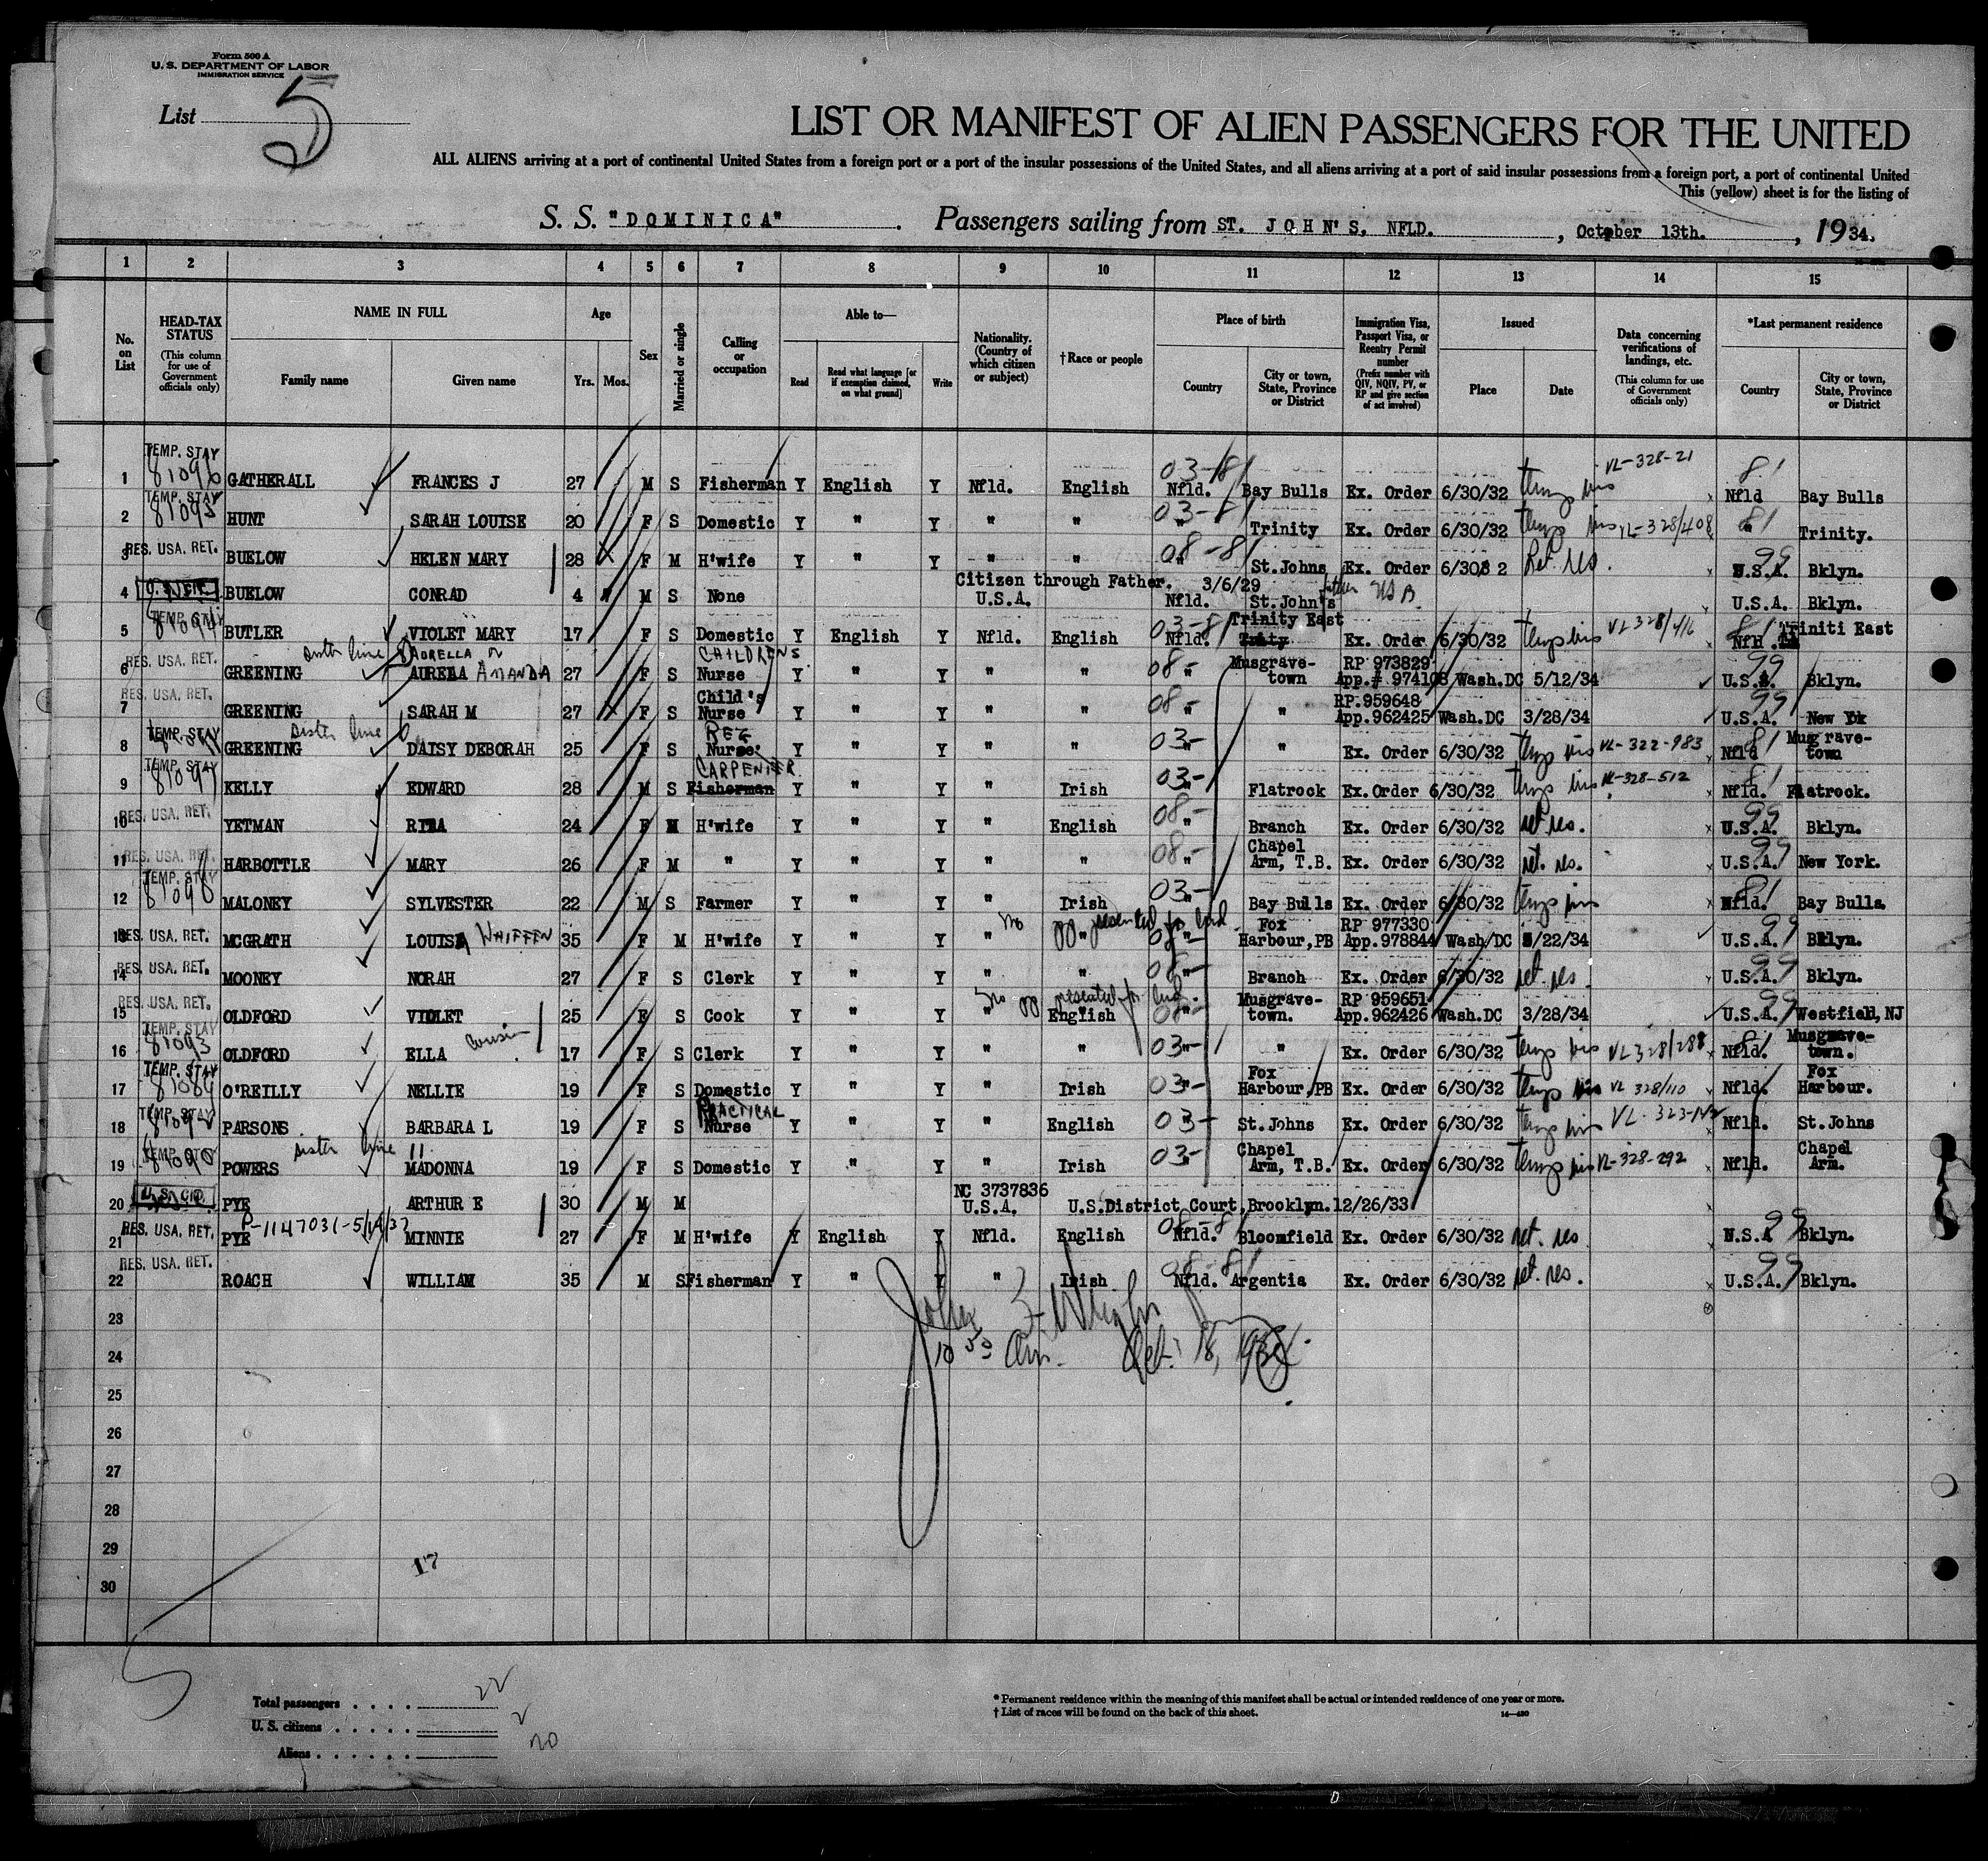 Form 500 A
U. S. DEPARTMENT OF LABOR
IMMIGRATION SERVICE
List 5
LIST OR MANIFEST OF ALIEN PASSENGERS FOR THE UNITED
ALL ALIENS arriving at a port of continental United States from a foreign port or a port of the insular possessions of the United States, and all aliens arriving at a port of said insular possessions from a foreign port, a port of continental United
This (yellow) sheet is for the listing of
S. S. "DOMINICA". Passengers sailing from ST. JOHN'S, NFLD., October 13th., 1934.
1 2 3 4 5 6 7 8 9 10 11 12 13 14 15
No. on List
HEAD-TAX STATUS (This column for use of Government officials only)
NAME IN FULL
Family name Given name
Age
Yrs. Mos.
Sex
Married or single
Calling or occupation
Able to—
Read Read what language [or if exemption claimed, on what ground] Write
Nationality. (Country of which citizen or subject)
†Race or people
Place of birth
Country City or town, State, Province or District
Immigration Visa, Passport Visa, or Reentry Permit number (Prefix number with QIV, NQIV, PV, or RP and give section of act involved)
Issued
Place Date
Data concerning verifications of landings, etc. (This column for use of Government officials only)
*Last permanent residence
Country City or town, State, Province or District
TEMP. STAY VL-328-21
1 81096 GATHERALL FRANCES J 27 M S Fisherman Y English Y Nfld. English 03-81 Nfld. Bay Bulls Ex. Order 6/30/32 81 Nfld Bay Bulls
TEMP. STAY
2 81095 HUNT SARAH LOUISE 20 F S Domestic Y " Y " " 03-81 " Trinity Ex. Order 6/30/32 VL-328/408 81 Trinity.
3 RES. USA. RET. BUELOW HELEN MARY 28 F M H'wife Y " Y " " 08-81 " St.Johns Ex. Order 6/30/32 Ret. res. 99 U.S.A. Bklyn.
Citizen through Father. 3/6/29
4 BUELOW CONRAD 4 M S None U.S.A. Nfld. St.John's U.S.A. Bklyn.
TEMP. STAY Trinity East
5 BUTLER VIOLET MARY 17 F S Domestic Y English Y Nfld. English 03-81 Nfld. Ex. Order 6/30/32 VL 328/416 81 Triniti East
sister line 8 CHILDRENS
6 RES. USA. RET. GREENING AMANDA 27 F S Nurse Y " Y " " 08- " Musgrave-town RP 973829 App.# 974108 Wash.DC 5/12/34 99 U.S.A. Bklyn.
7 RES. USA. RET. GREENING SARAH M 27 F S Child's Nurse Y " Y " " 08- " " RP.959648 App.962425 Wash.DC 3/28/34 99 U.S.A. New York
sister line 6
8 TEMP. STAY GREENING DAISY DEBORAH 25 F S REG Nurse Y " Y " " 03- " " Ex. Order 6/30/32 VL-322-983 81 Nfld Musgrave-town
TEMP. STAY CARPENTER
9 KELLY EDWARD 28 M S Fisherman Y " Y " Irish 03- " Flatrock Ex.Order 6/30/32 VL-328-512 81 Nfld. Flatrock.
10 RES. USA. RET. YETMAN RITA 24 F M H'wife Y " Y " English 08- " Branch Ex. Order 6/30/32 ret. res. 99 U.S.A. Bklyn.
11 RES. USA. RET. HARBOTTLE MARY 26 F M " Y " Y " " 08- " Chapel Arm, T.B. Ex. Order 6/30/32 ret. res. 99 U.S.A. New York.
TEMP. STAY
12 MALONEY SYLVESTER 22 M S Farmer Y " Y " Irish 03- " Bay Bulls Ex. Order 6/30/32 81 Nfld. Bay Bulls.
13 RES. USA. RET. MCGRATH LOUISA WHIFFEN 35 F M H'wife Y " Y " " 08- " Fox Harbour, PB RP 977330 App.978844 Wash/DC 5/22/34 99 U.S.A. Bklyn.
14 RES. USA. RET. MOONEY NORAH 27 F S Clerk Y " Y " " 08- " Branch Ex. Order 6/30/32 ret. res. 99 U.S.A. Bklyn.
15 RES. USA. RET. OLDFORD VIOLET 25 F S Cook Y " Y " English 08- " Musgrave-town. RP 959651 App.962426 Wash.DC 3/28/34 99 U.S.A. Westfield, NJ
TEMP. STAY
16 81093 OLDFORD ELLA cousin 17 F S Clerk Y " Y " " 03- " " Ex. Order 6/30/32 VL 328/288 81 Nfld. Musgrave-town.
TEMP. STAY
17 O'REILLY NELLIE 19 F S Domestic Y " Y " Irish 03- " Fox Harbour, PB Ex. Order 6/30/32 VL 328/110 Nfld. Fox Harbour.
TEMP. STAY PRACTICAL
18 81092 PARSONS BARBARA L 19 F S Nurse Y " Y " English 03- St.Johns Ex. Order 6/30/32 Nfld. St.Johns
sister line 11
19 81090 POWERS MADONNA 19 F S Domestic Y " Y " Irish 03- " Chapel Arm, T.B. Ex. Order 6/30/32 VL-328-292 Nfld. Chapel Arm.
20 PYE ARTHUR E 30 M M NC 3737836 U.S.A. U.S.District Court, Brooklyn. 12/26/33
P-1147031-5/19/37
21 RES. USA. RET. PYE MINNIE 27 F M H'wife Y English Y Nfld. English 08-81 Nfld. Bloomfield Ex. Order 6/30/32 ret. res 99 Bklyn.
22 RES. USA. RET. ROACH WILLIAM 35 M S Fisherman Y " Y " Irish 08-81 Nfld. Argentia Ex. Order 6/30/32 ret. res. 99 U.S.A. Bklyn.
23
24
Oct. 18, 1934
25
26
27
28
29
30
17
Total passengers . . . . 22
U. S. citizens . . . . . 2
Aliens . . . . . . 20
* Permanent residence within the meaning of this manifest shall be actual or intended residence of one year or more.
† List of races will be found on the back of this sheet.
14—430